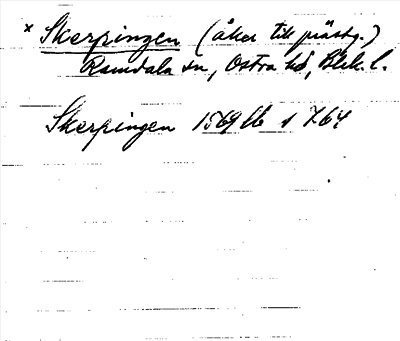 × Skerpingen (åker till prästg.)
Ramdala sn, Östra hd, Blek. l.
Skerpingen 1569 lb s 764